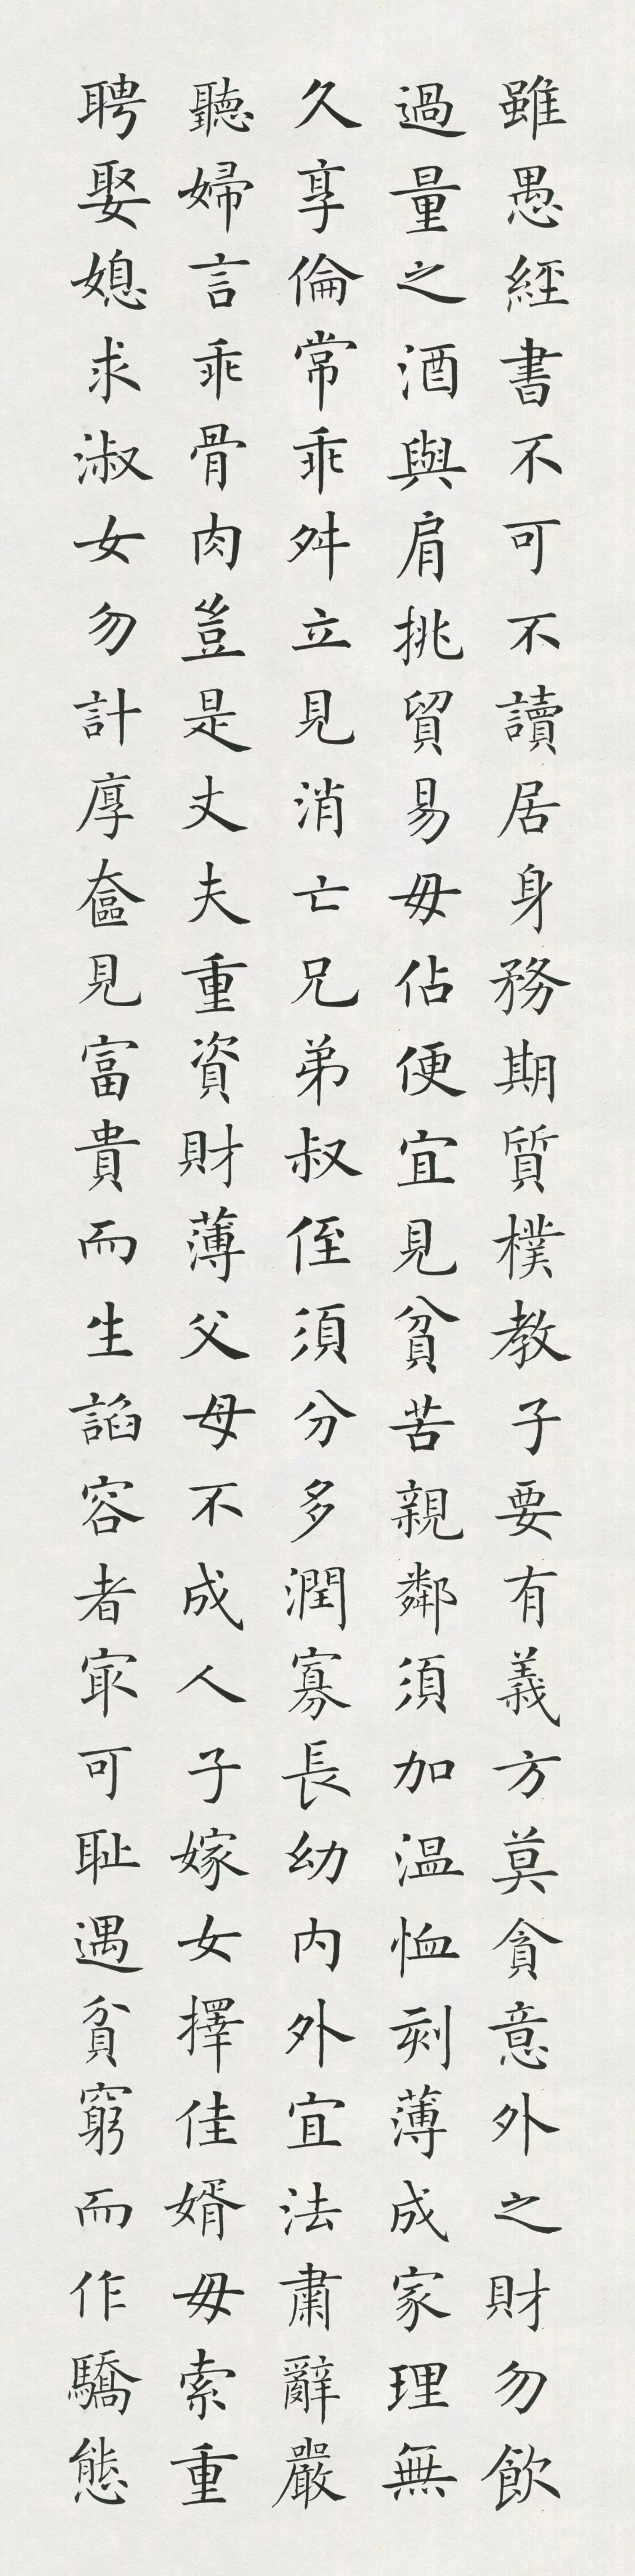 雖愚經書不可不讀居身務期質樸教子要有義方莫貪意外之財勿飲
過量之酒與肩挑貿易毋佔便宜見貧苦親鄰須加温恤刻薄成家理無
久享倫常乖舛立見消亡兄弟叔侄須分多潤寡長幼内外宜法肅辭嚴
聽婦言乖骨肉豈是丈夫重資財薄父母不成人子嫁女擇佳婿毋索重
聘娶媳求淑女勿計厚奩見富貴而生諂容者冣可耻遇貧窮而作驕態